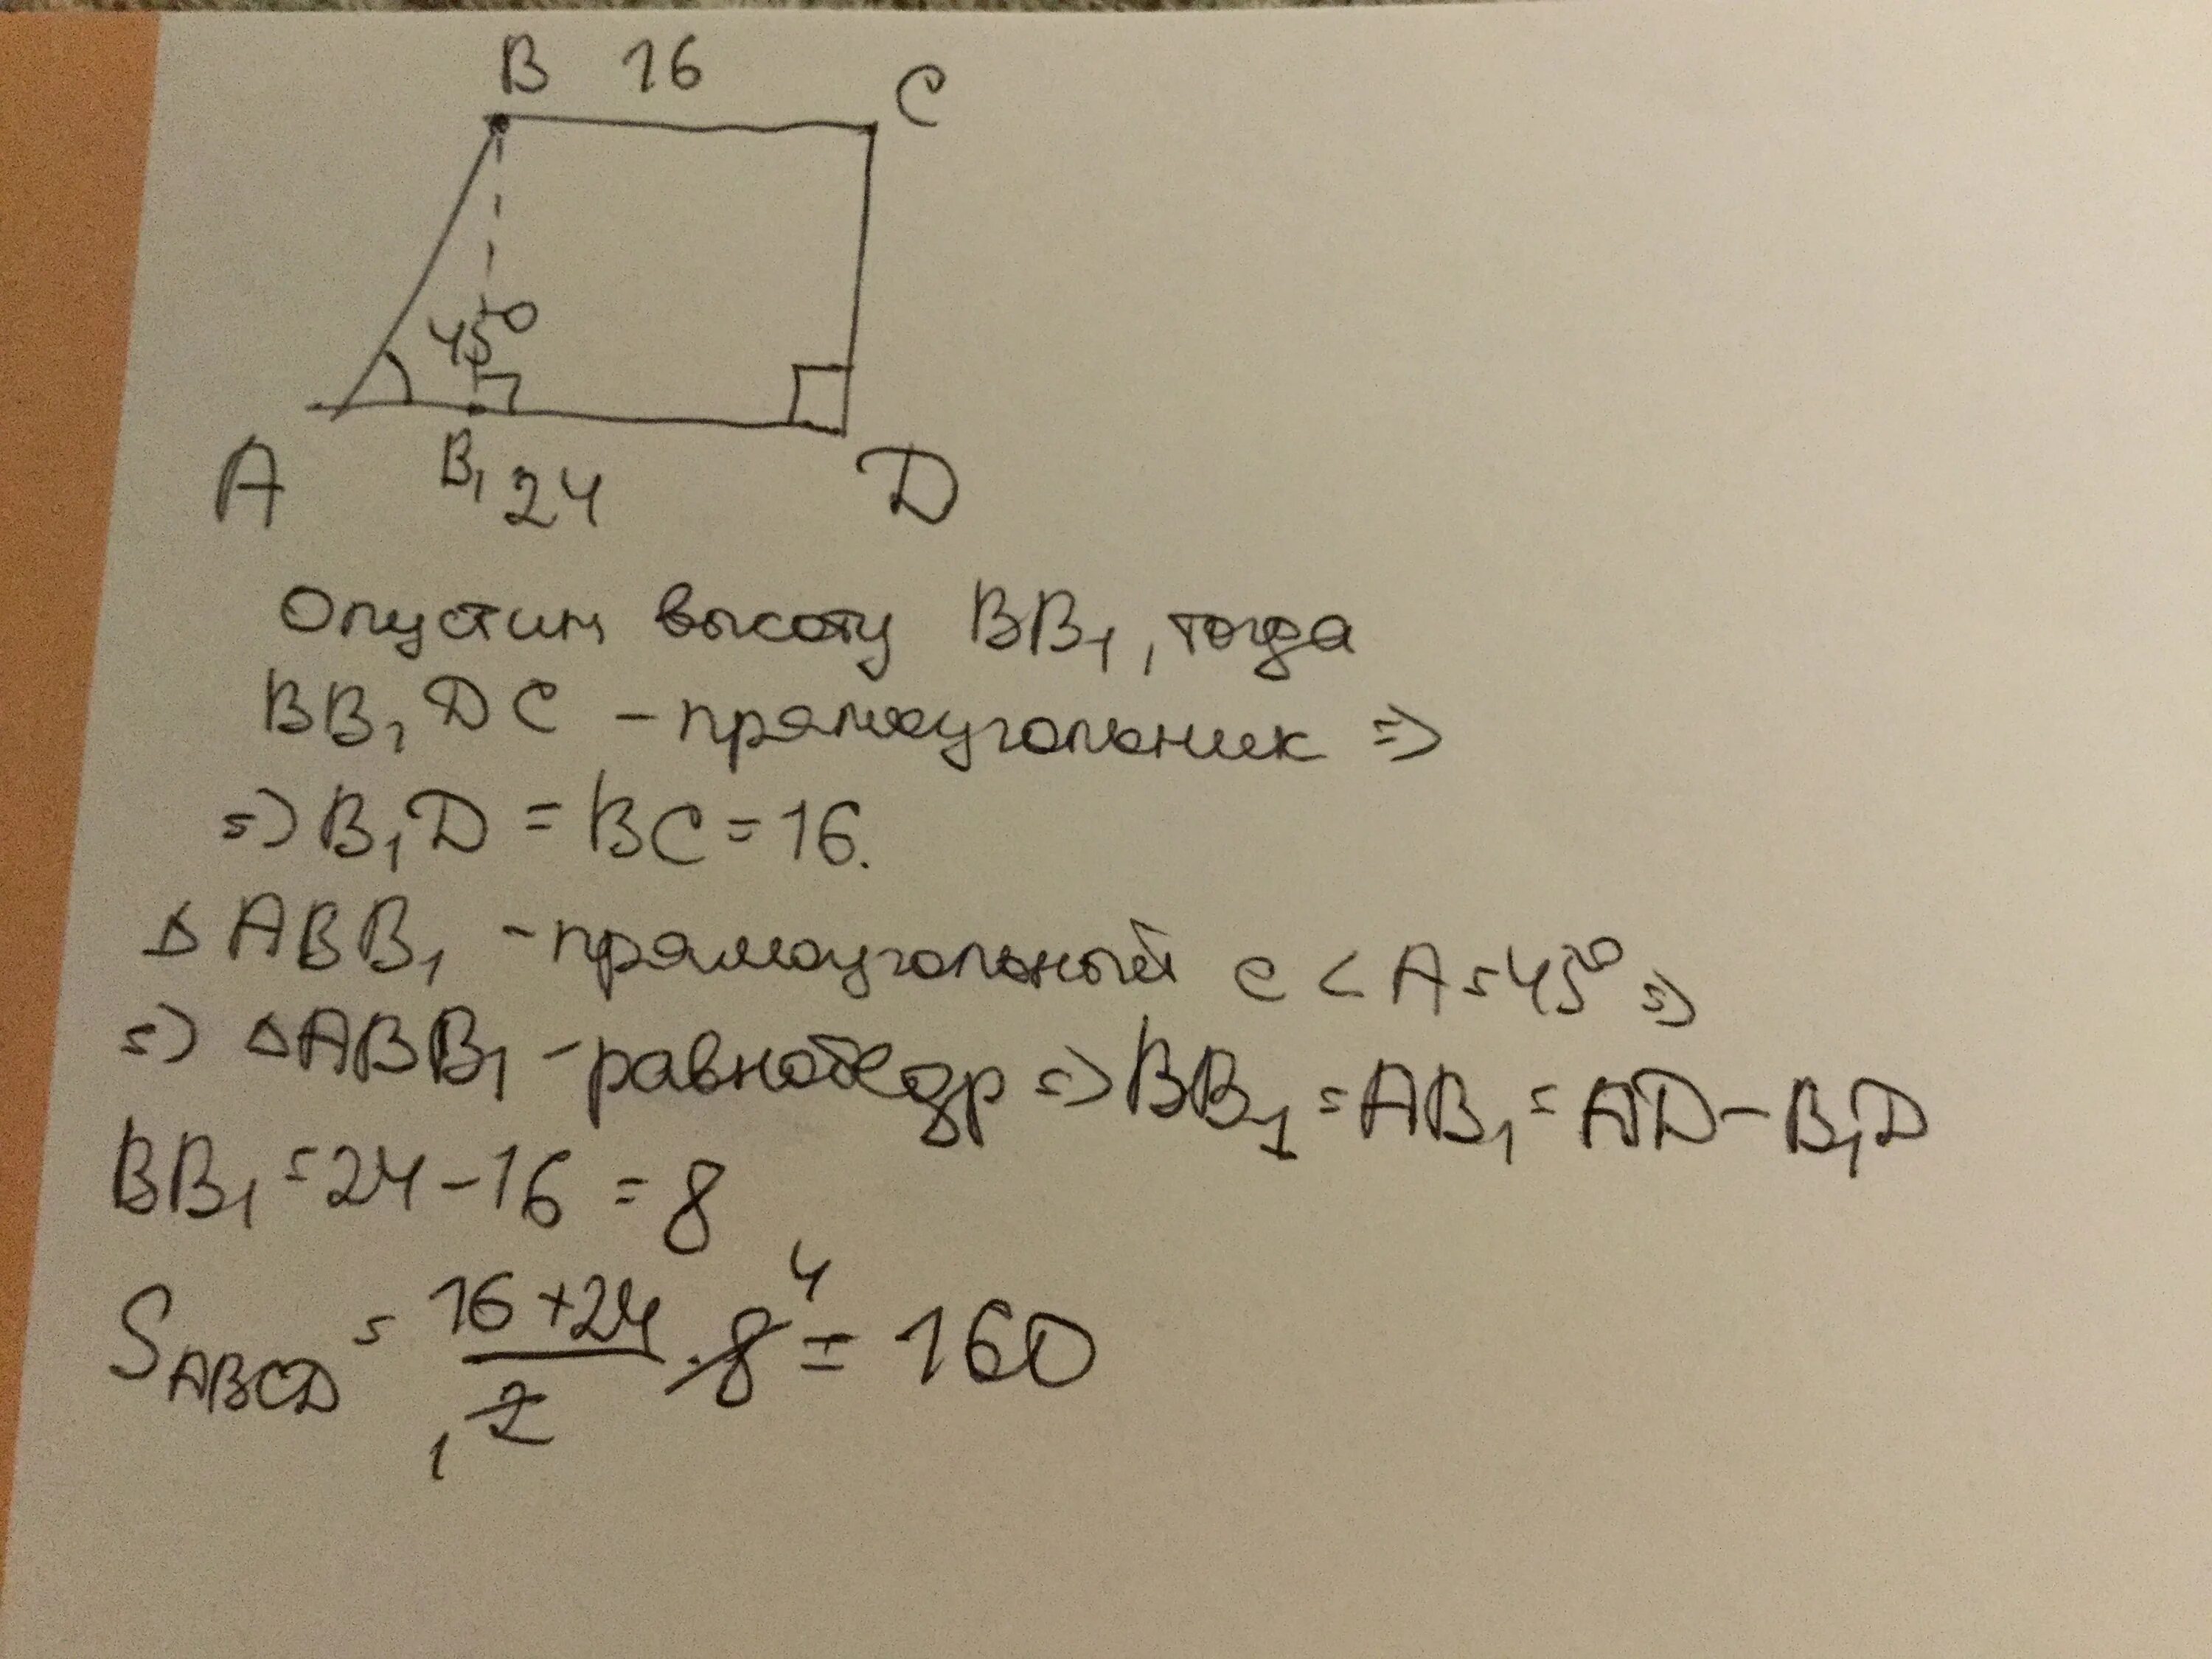 B 16 C
45°
A B₁ 24 D
Опустим высоту BB₁, тогда
BB₁DC – прямоугольник =>
=> B₁D = BC = 16.
Δ ABB₁ – прямоугольный с < A = 45° =>
=> ΔABB₁ – равнобедр => BB₁ = AB₁ = AD – B₁D
BB₁ = 24 – 16 = 8
4
S_ABCD = (16 + 24)/2 · 8 = 160
1